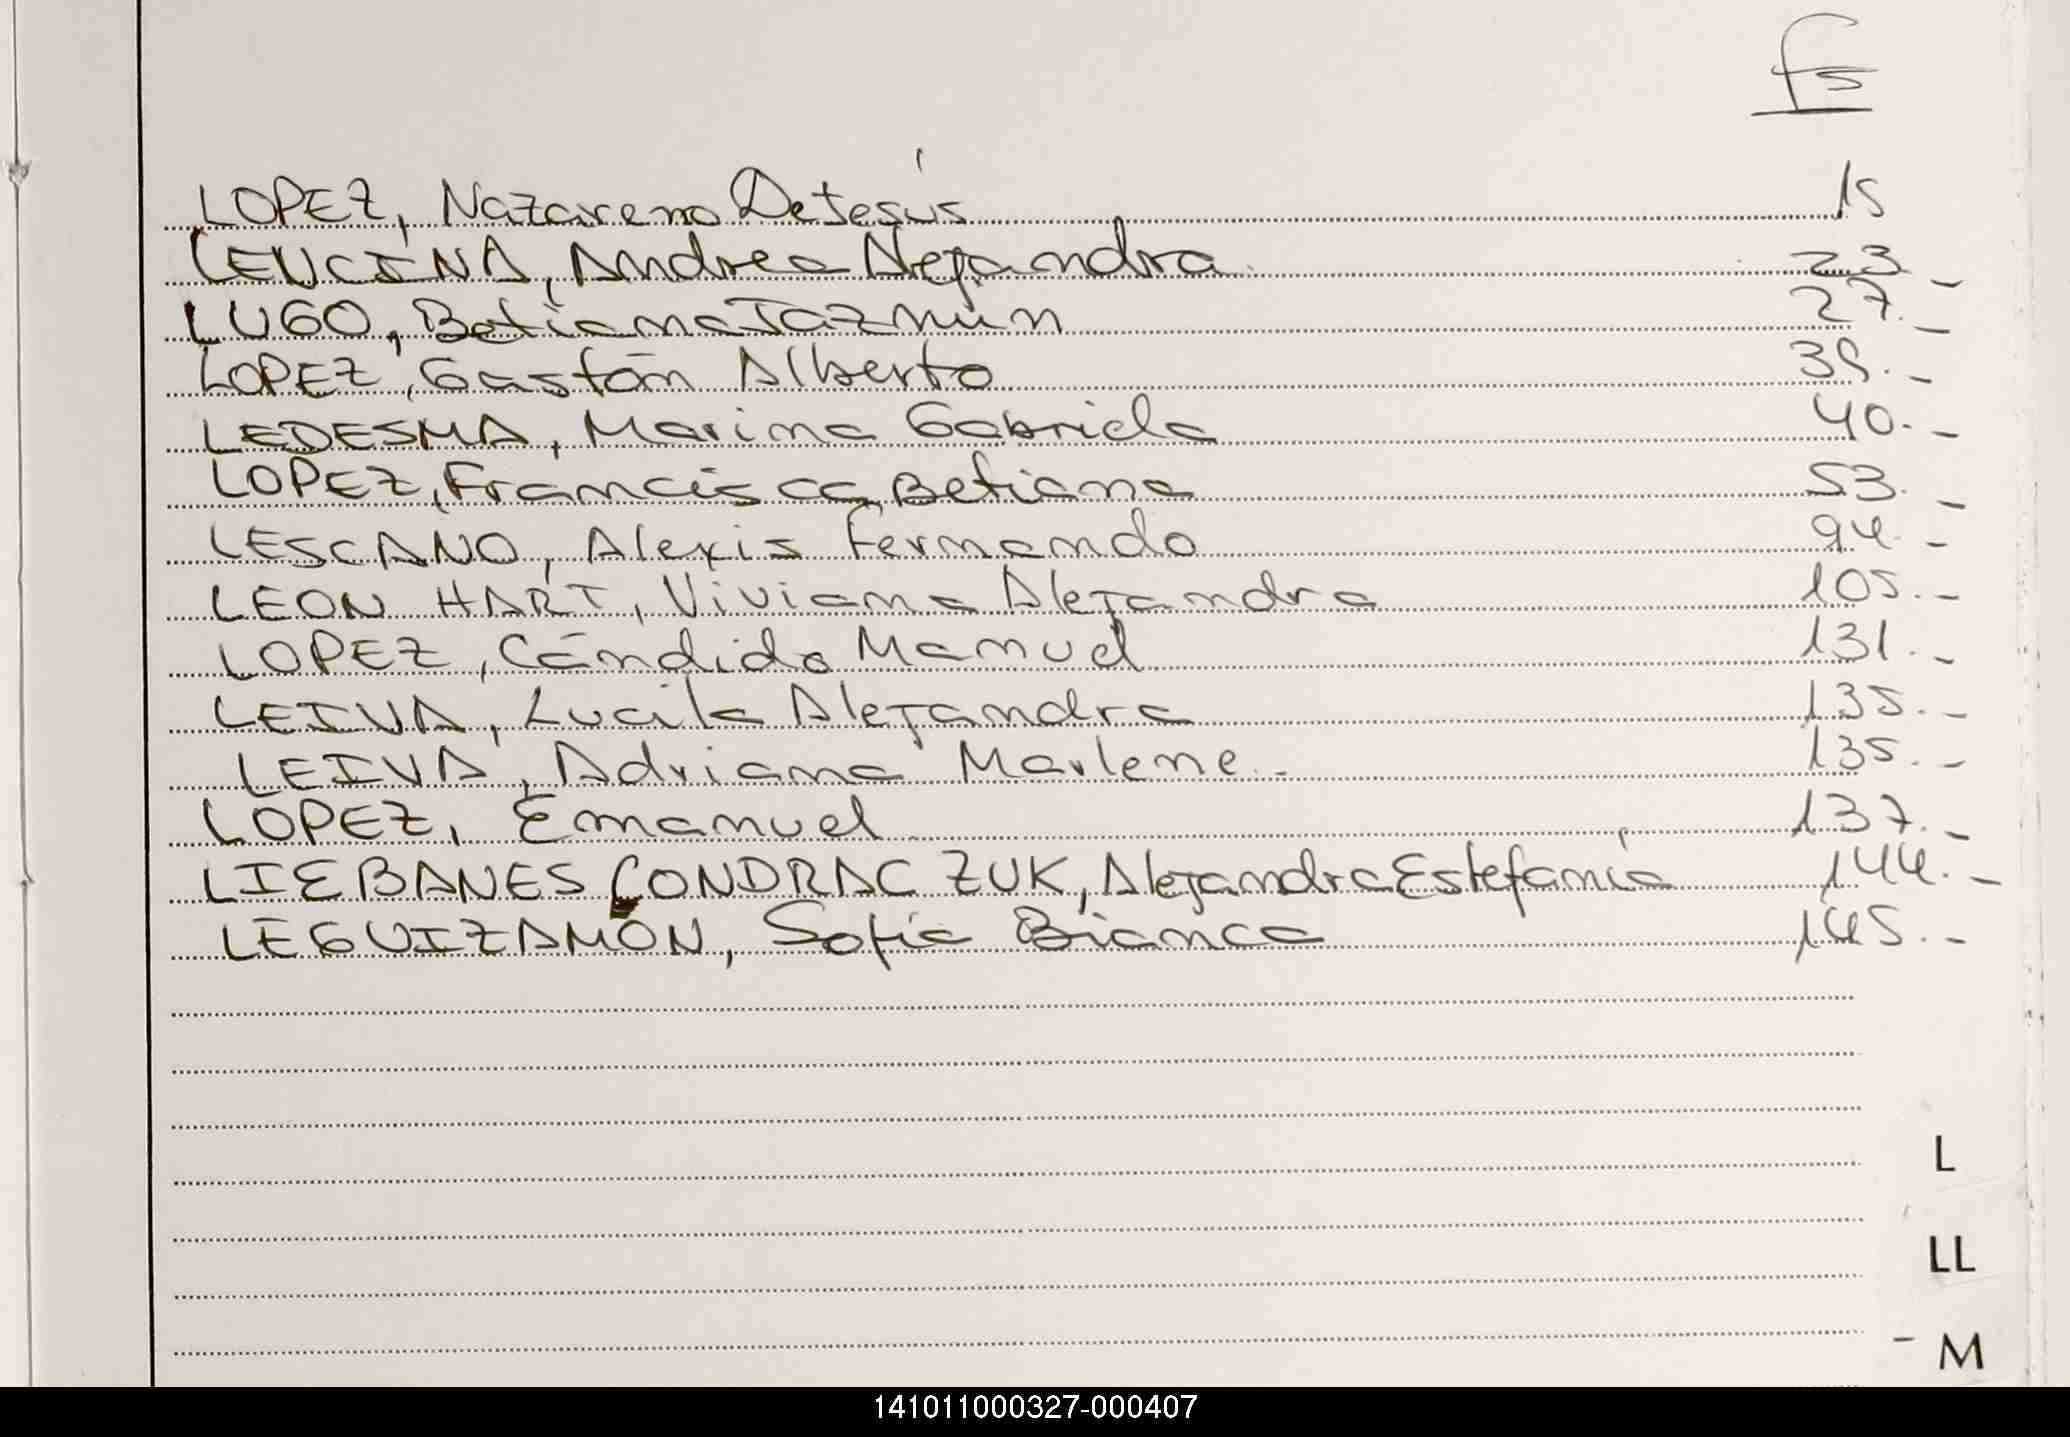 fs
LOPEZ, Nazareno De Jesús 15
LEUCINA, Andrea Alejandra 23.-
LUGO, Betiana Jazmin 27.-
LOPEZ, Gastón Alberto 39.-
LEDESMA, Marina Gabriela 40.-
LOPEZ, Francisca Betiana 53.-
LESCANO, Alexis Fernando 94.-
LEON HART, Viviana Alejandra 105.-
LOPEZ, Cándido Manuel 131.-
LEIVA, Lucila Alejandra 135.-
LEIVA, Adriana Marlene.- 135.-
LOPEZ, Emanuel 137.-
LIEBANES CONDRAC ZUK, Alejandra Estefanía 144.-
LEGUIZAMÓN, Sofía Bianca 145.-
L
LL
- M
141011000327-000407